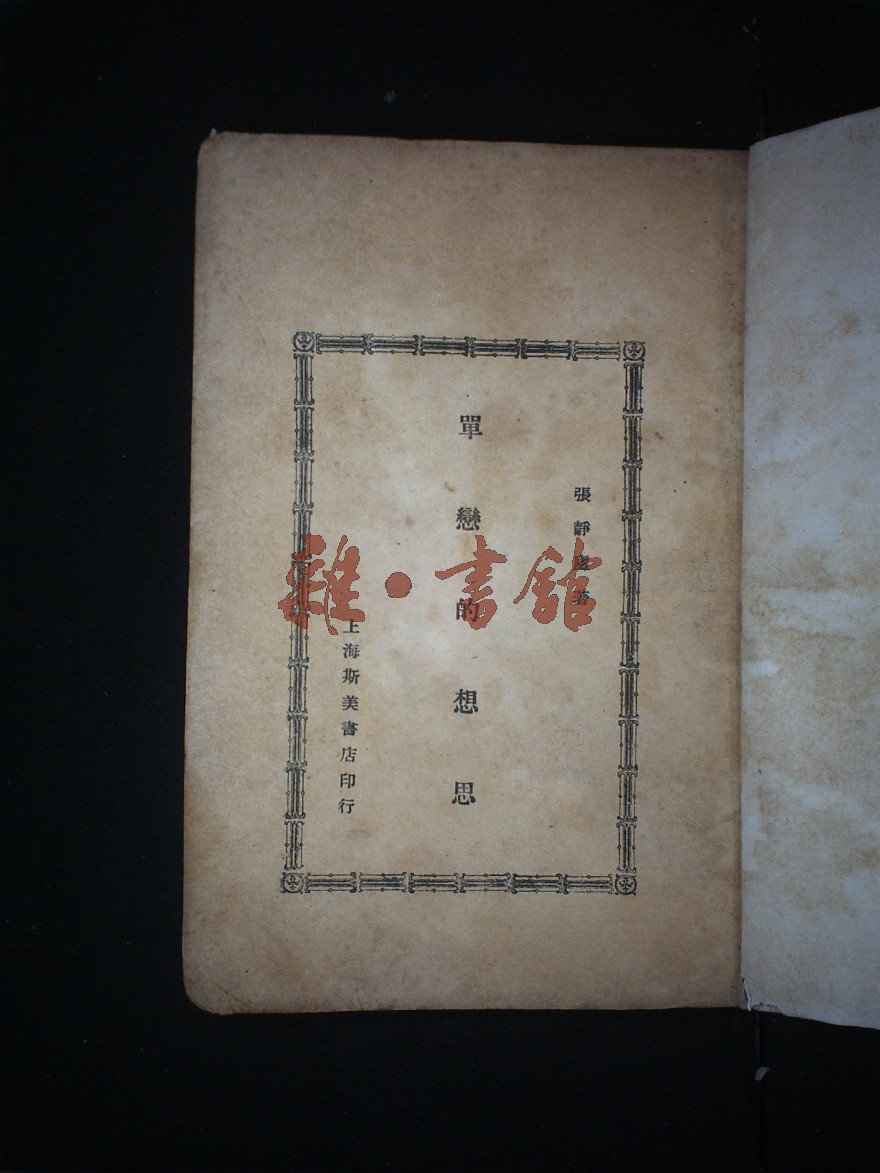 張靜著
單戀的想思
上海斯美書店印行
雜·書館